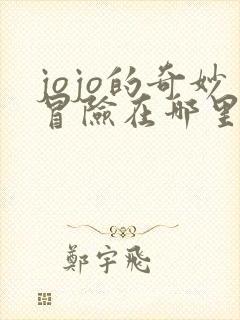 jojo的奇妙
冒險在哪里
鄭宇飛